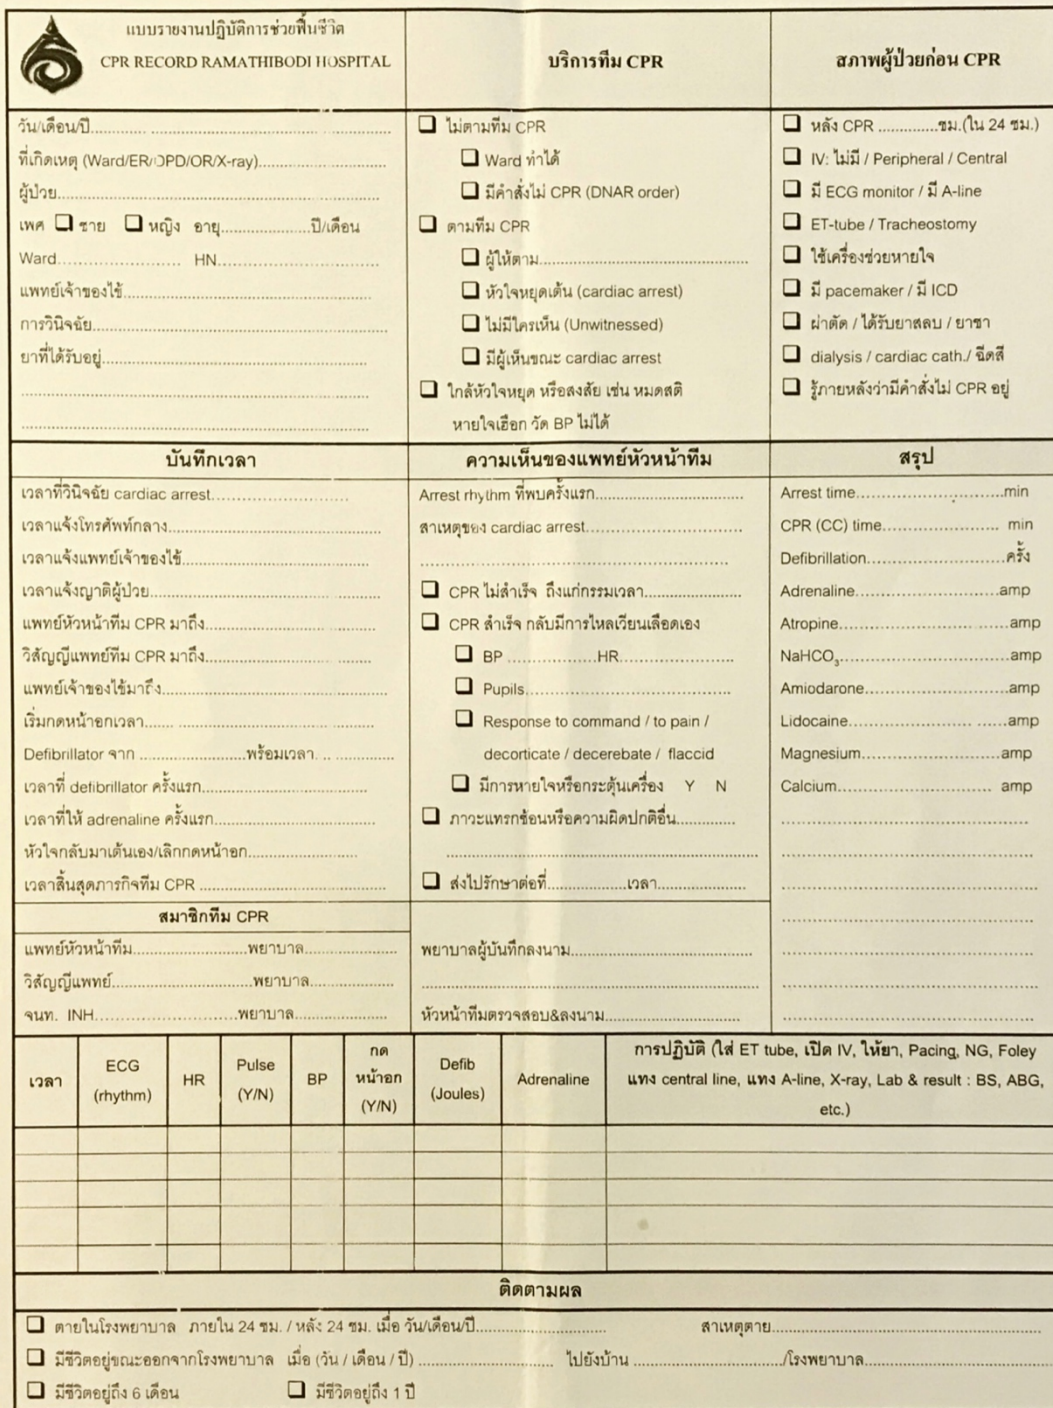 แบบรายงานปฏิบัติการช่วยฟื้นชีวิต
CPR RECORD RAMATHIBODI HOSPITAL
บริการทีม CPR
สภาพผู้ป่วยก่อน CPR
วัน/เดือน/ปี
ที่เกิดเหตุ (Ward/ER/OPD/OR/X-ray)
ผู้ป่วย
เพศ ☐ ชาย ☐ หญิง อายุ ปี/เดือน
Ward HN
แพทย์เจ้าของไข้
การวินิจฉัย
ยาที่ได้รับอยู่
☐ ไม่ตามทีม CPR
☐ Ward ทำได้
☐ มีคำสั่งไม่ CPR (DNAR order)
☐ ตามทีม CPR
☐ ผู้ให้ตาม
☐ หัวใจหยุดเต้น (cardiac arrest)
☐ ไม่มีใครเห็น (Unwitnessed)
☐ มีผู้เห็นขณะ cardiac arrest
☐ ใกล้หัวใจหยุด หรือสงสัย เช่น หมดสติ
หายใจเฮือก วัด BP ไม่ได้
☐ หลัง CPR ชม.(ใน 24 ชม.)
☐ IV: ไม่มี / Peripheral / Central
☐ มี ECG monitor / มี A-line
☐ ET-tube / Tracheostomy
☐ ใช้เครื่องช่วยหายใจ
☐ มี pacemaker / มี ICD
☐ ผ่าตัด / ได้รับยาสลบ / ยาชา
☐ dialysis / cardiac cath./ ฉีดสี
☐ รู้ภายหลังว่ามีคำสั่งไม่ CPR อยู่
บันทึกเวลา
เวลาที่วินิจฉัย cardiac arrest
เวลาแจ้งโทรศัพท์กลาง
เวลาแจ้งแพทย์เจ้าของไข้
เวลาแจ้งญาติผู้ป่วย
แพทย์หัวหน้าทีม CPR มาถึง
วิสัญญีแพทย์ทีม CPR มาถึง
แพทย์เจ้าของไข้มาถึง
เริ่มกดหน้าอกเวลา
Defibrillator จาก พร้อมเวลา
เวลาที่ defibrillator ครั้งแรก
เวลาที่ให้ adrenaline ครั้งแรก
หัวใจกลับมาเต้นเอง/เลิกกดหน้าอก
เวลาสิ้นสุดภารกิจทีม CPR
ความเห็นของแพทย์หัวหน้าทีม
Arrest rhythm ที่พบครั้งแรก
สาเหตุของ cardiac arrest
☐ CPR ไม่สำเร็จ ถึงแก่กรรมเวลา
☐ CPR สำเร็จ กลับมีการไหลเวียนเลือดเอง
☐ BP HR
☐ Pupils
☐ Response to command / to pain /
decorticate / decerebate / flaccid
☐ มีการหายใจหรือกระตุ้นเครื่อง Y N
☐ ภาวะแทรกซ้อนหรือความผิดปกติอื่น
☐ ส่งไปรักษาต่อที่ เวลา
สรุป
Arrest time min
CPR (CC) time min
Defibrillation ครั้ง
Adrenaline amp
Atropine amp
NaHCO₃ amp
Amiodarone amp
Lidocaine amp
Magnesium amp
Calcium amp
สมาชิกทีม CPR
แพทย์หัวหน้าทีม พยาบาล
วิสัญญีแพทย์ พยาบาล
จนท. INH พยาบาล
พยาบาลผู้บันทึกลงนาม
หัวหน้าทีมตรวจสอบ&ลงนาม
เวลา
ECG
(rhythm)
HR
Pulse
(Y/N)
BP
กด
หน้าอก
(Y/N)
Defib
(Joules)
Adrenaline
การปฏิบัติ (ใส่ ET tube, เปิด IV, ให้ยา, Pacing, NG, Foley
แทง central line, แทง A-line, X-ray, Lab & result : BS, ABG,
etc.)
ติดตามผล
☐ ตายในโรงพยาบาล ภายใน 24 ชม. / หลัง 24 ชม. เมื่อ วัน/เดือน/ปี สาเหตุตาย
☐ มีชีวิตอยู่ขณะออกจากโรงพยาบาล เมื่อ (วัน / เดือน / ปี) ไปยังบ้าน /โรงพยาบาล
☐ มีชีวิตอยู่ถึง 6 เดือน ☐ มีชีวิตอยู่ถึง 1 ปี